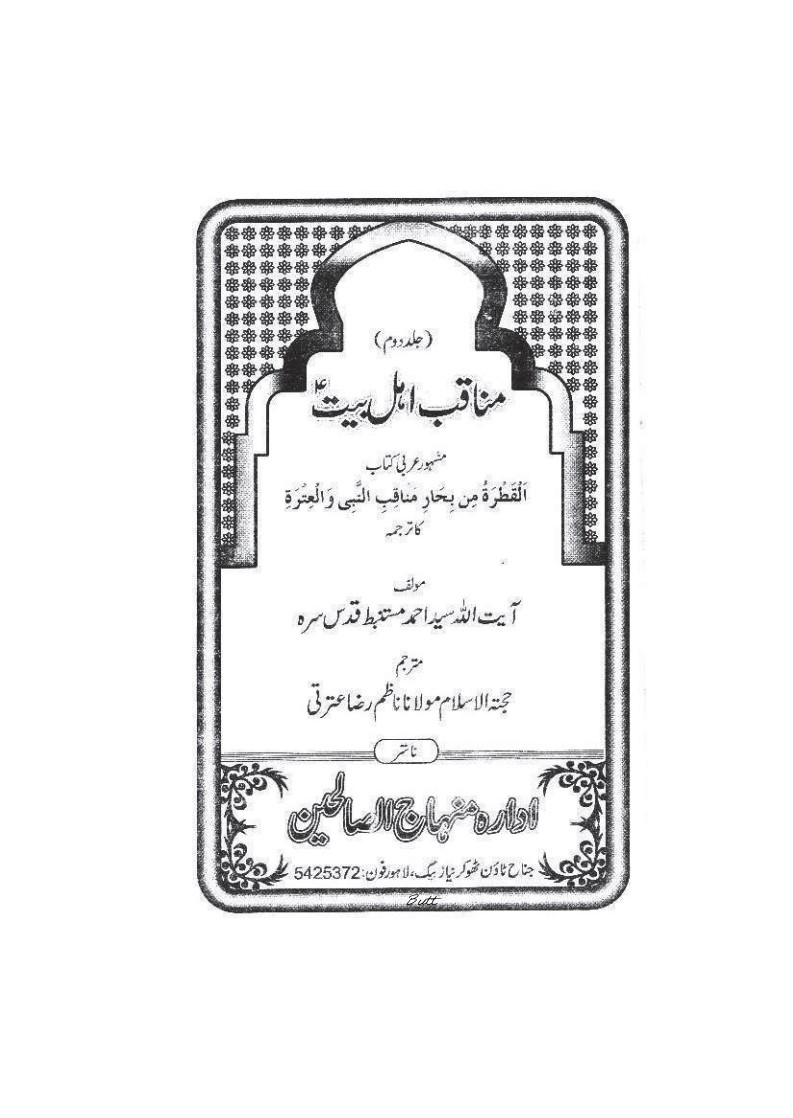 (جلد دوم)
مناقب اہل بیتؑ
مشہور عربی کتاب
اَلْقَطْرَةُ مِن بِحَارِ مَنَاقِبِ النَّبِی وَالْعِتْرَةِ
کا ترجمہ
مولف
آیت اللہ سید احمد مستنبط قدس سرہ
مترجم
حجتہ الاسلام مولانا ناظم رضا عترتی
ناشر
ادارہ منہاج الصالحین
جناح ٹاؤن ٹھوکر نیاز بیگ، لاہور فون: 5425372
Butt